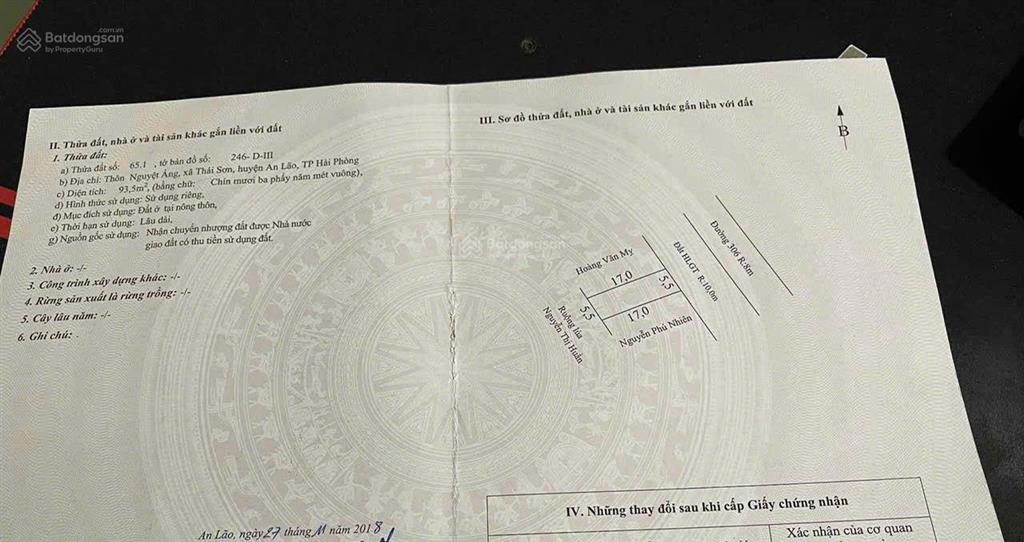 Batdongsan.com.vn
by PropertyGuru
II. Thửa đất, nhà ở và tài sản khác gắn liền với đất
1. Thửa đất:
a) Thửa đất số: 65.1 , tờ bản đồ số: 246- D-III
b) Địa chỉ: Thôn Nguyệt Áng, xã Thái Sơn, huyện An Lão, TP Hải Phòng
c) Diện tích: 93,5m², (bằng chữ: Chín mươi ba phẩy năm mét vuông),
d) Hình thức sử dụng: Sử dụng riêng,
đ) Mục đích sử dụng: Đất ở tại nông thôn,
e) Thời hạn sử dụng: Lâu dài,
g) Nguồn gốc sử dụng: Nhận chuyển nhượng đất được Nhà nước
giao đất có thu tiền sử dụng đất.
2. Nhà ở: -/-
3. Công trình xây dựng khác: -/-
4. Rừng sản xuất là rừng trồng: -/-
5. Cây lâu năm: -/-
6. Ghi chú: .
An Lão, ngày 27 tháng 11 năm 2018
III. Sơ đồ thửa đất, nhà ở và tài sản khác gắn liền với đất
B
Batdongsan
Hoàng Văn My
17.0
5.5
5.5
17.0
Nguyễn Phú Nhiên
Ruộng lúa
Nguyễn Thị Huấn
Đất HLGT R:10.0m
Đường 306 R:8m
IV. Những thay đổi sau khi cấp Giấy chứng nhận
Xác nhận của cơ quan